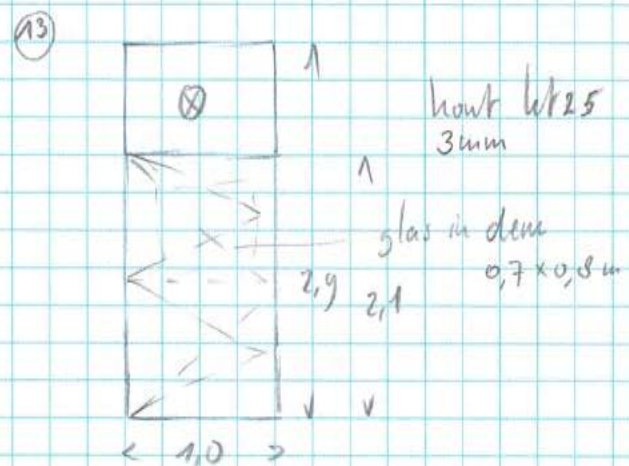 13
hout kt 25
3mm
glas in deur
0,7 x 0,8 m
2,9
2,1
1,0